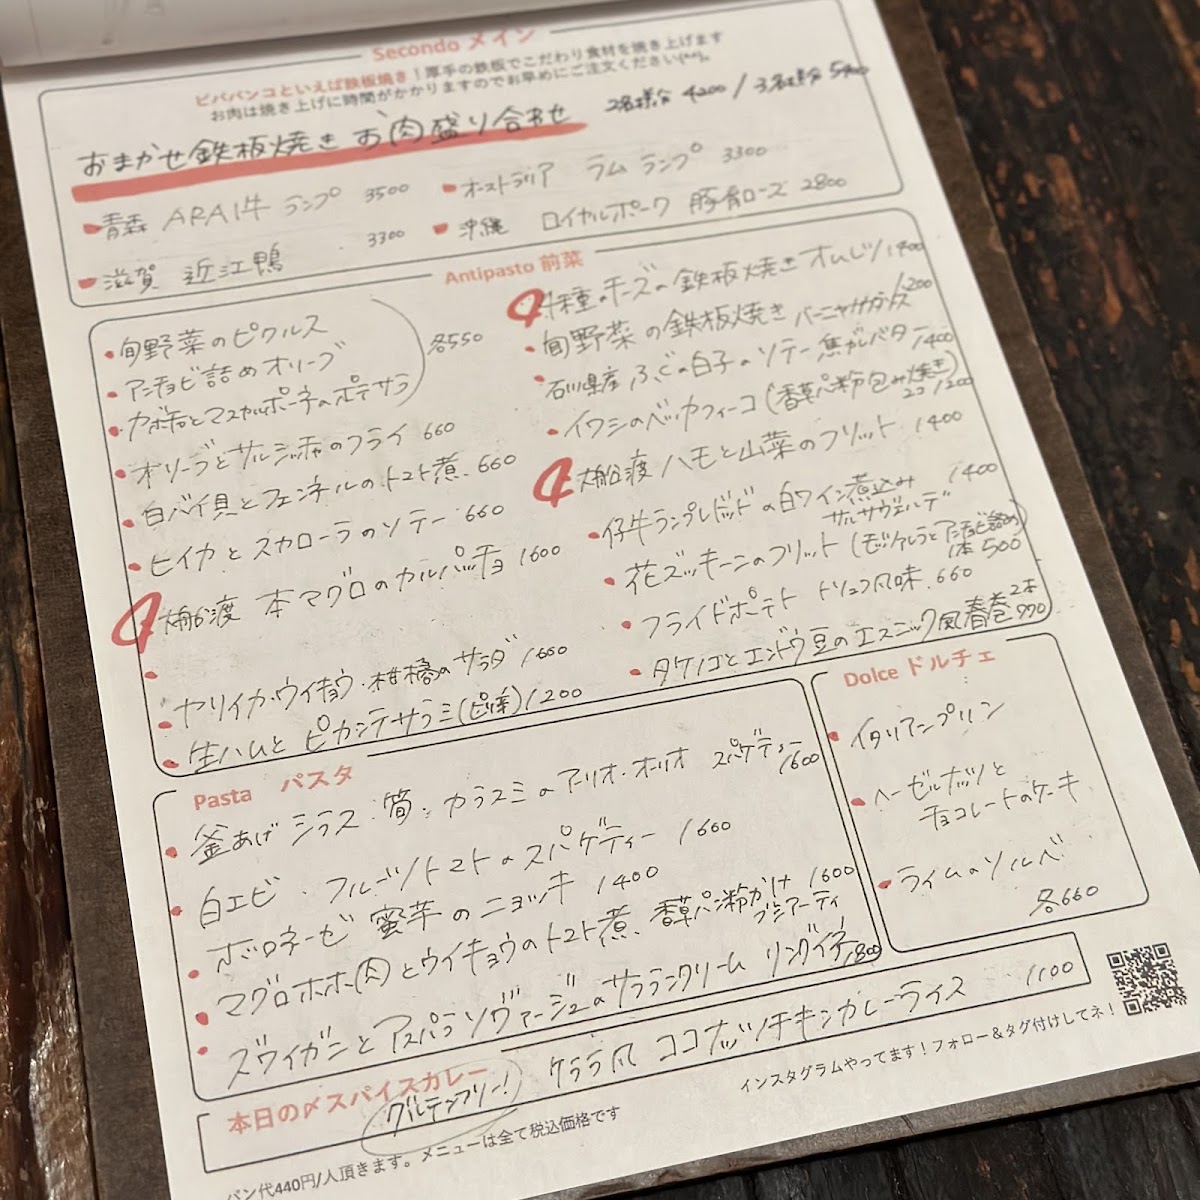 Secondo メイン
ビババンコといえば鉄板焼き!厚手の鉄板でこだわり食材を焼き上げます
お肉は焼き上げに時間がかかりますのでお早めにご注文ください
おまかせ鉄板焼き お肉盛り合わせ 2名様分 4200 / 3名様分 5900
青森 ARAI牛 ランプ 3500
オーストラリア ラム ランプ 3300
滋賀 近江鴨 3300
沖縄 ロイヤルポーク 豚肩ロース 2800
Antipasto 前菜
旬野菜のピクルス
アンチョビ詰めオリーブ
カボチャとマスカルポーネのポテサラ
各550
オリーブとサルシッチャのフライ 660
白バイ貝とフェンネルのトマト煮 660
ヒイカとスカローラのソテー 660
大船渡 本マグロのカルパッチョ 1600
ヤリイカ・ウイキョウ・柑橘のサラダ 1600
生ハムと ピカンテサラミ(ピリ辛) 1200
4種のチーズの鉄板焼きオムレツ 1400
旬野菜の鉄板焼き バーニャカウダソース 1200
石川県産 ふぐの白子のソテー 焦がしバター 1400
イワシのベッカフィーコ(香草パン粉包み焼き) 2コ 1200
大船渡 ハモと山菜のフリット 1400
仔牛ランプレドットの白ワイン煮込み 1400
サルサヴェルデ
花ズッキーニのフリット(モッツァレラとアンチョビ詰め)
1本 500
フライドポテト トリュフ風味 660
タケノコとエンドウ豆のエスニック風春巻 2本 770
Pasta パスタ
釜あげシラス・筍・カラスミのアーリオ・オーリオ スパゲティー 1600
白エビ・フルーツトマトのスパゲティー 1600
ボロネーゼ 蜜芋のニョッキ 1400
マグロホホ(肉)とウイキョウのトマト煮、香草パン粉がけ 1600
ブジアーティ
ズワイガニとアスパラソヴァージュのサフランクリーム リングイネ 1800
Dolce ドルチェ
イタリアンプリン
ヘーゼルナッツと
チョコレートのケーキ
ライムのソルベ
各660
本日の〆スパイスカレー
グルテンフリー!
ケララ風 ココナッツチキンカレーライス 1100
インスタグラムやってます!フォロー&タグ付けしてネ!
パン代440円/人頂きます。メニューは全て税込価格です